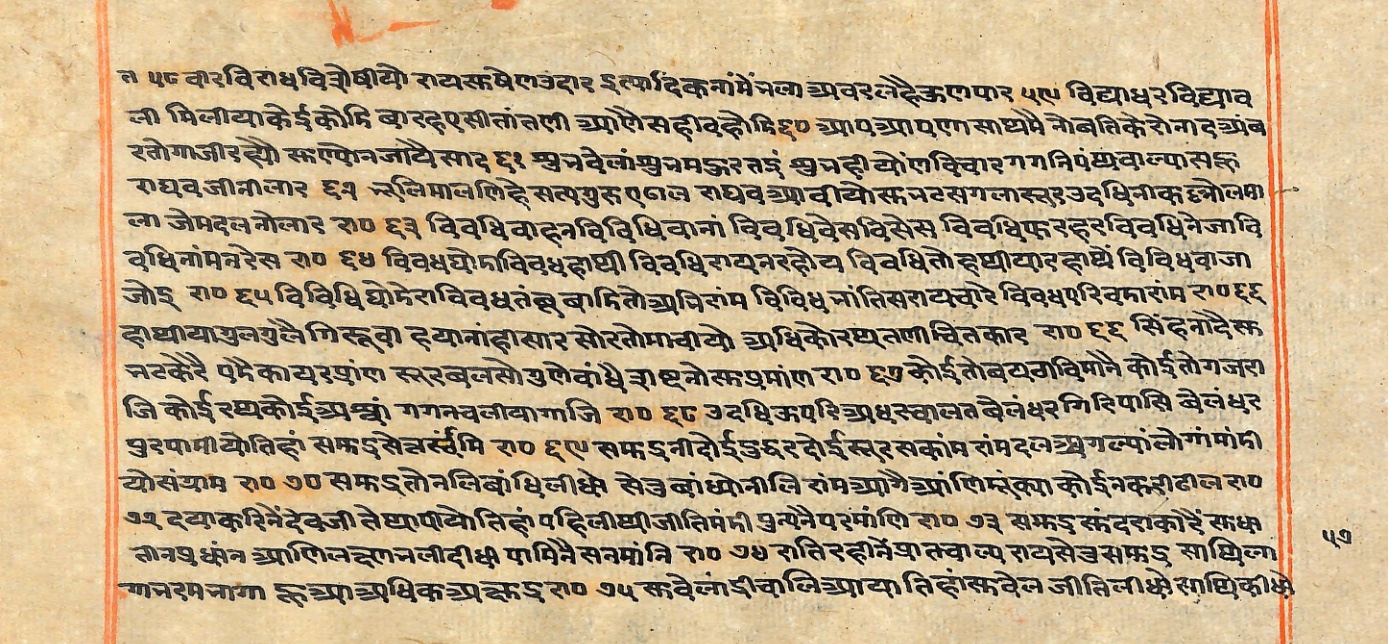 त ५८ वारविराधवित्रोषीयो रायसुषेणउदार इत्यादिकनांमेंनला अवरलहैऊणपार ५९ विद्याधरविद्याव
ली मिलीयाकेईकोमि बारहएसीतांतणी आणैसहीवहोमि६० आपआपणा साथमै नोबतिकेरोनाद अंब
रतोगाजीरह्यो सुणयोनजायैसाद ६१ शुनवेलांशुनमऊरतइं शुनही योंणविचार गगनिपंथचाल्यासऊ
राघवजीनीलार ६२ ललिमालणिहे सत्यगुरु एढाल राघवआवीयोसुनटसगलासूर उदधिनीकल्लोलमा
ला जेमदलनोलार रा० ६३ विवधिवाहनविविधिवानां विवधिवेसविसेस विवधिफरहरविवधिनेजा वि
वधिनांमनरेस रा० ६४ विवधघोमाविवधहाथी विवधिरायनरहोय विवधितोहथीयारहाथे विविधवाजा
जोइ रा० ६५ विविधिघोमेराविवधतंबू बामितोअनिरांम विविधनांतिसरायचारे विवधपरिवमारांम रा०६६
हाथीयागुलगुलैगिरूवा हयानांहीसार सोरतोमाचीयो अधिकोरथतणीचितकार रा० ६६ सिंहनादैसु
नटकेरै पमैकायरप्रांण सूरबलसोगुणोवांधै राघनोसुप्रमांण रा० ६७ कोईतोबयठाविमोनै कोईतोगजरा
जि कोईरथकोईअश्वां गगनचलीयागाजि रा० ६८ उदधिऊपरिअधरचालत वैलंधरगिरिपासि वेलंधर
पुरपामीयोतिहां समुद्रसेत्र सूंमि रा० ६९ समुद्रनीदोईदुद्धरदोईसूरसकांम रांमदलआगल्यांलोगांमांमी
योसंग्राम रा० ७० समुद्रतोनलिबांधिलीधो सेतुबांध्योनीलि रांमआगैआंणिमूंक्या कोईनकरीढील रा०
७२ दयाकरिनेंदेवजी ते थापीयोतिहां पहिलीथीजीतिमंमी पुन्यनैपरमांणि रा० ७३ समुद्रसुंदराकोरैं सुधा
तीनपुधांन आणिलक्ष्मणनलीदीधी पामिनैसनमांनि रा० ७४ रातिरहीनैंप्रातचाल्प रायसेत्रसमुद्र साथिला
गानरमनागा ऊआअधिकअक्षुद्र रा० ७५ सुवेलांद्रीचालिआया तिहांसुवेल जीतिलीधोसाथिकीधो
५७